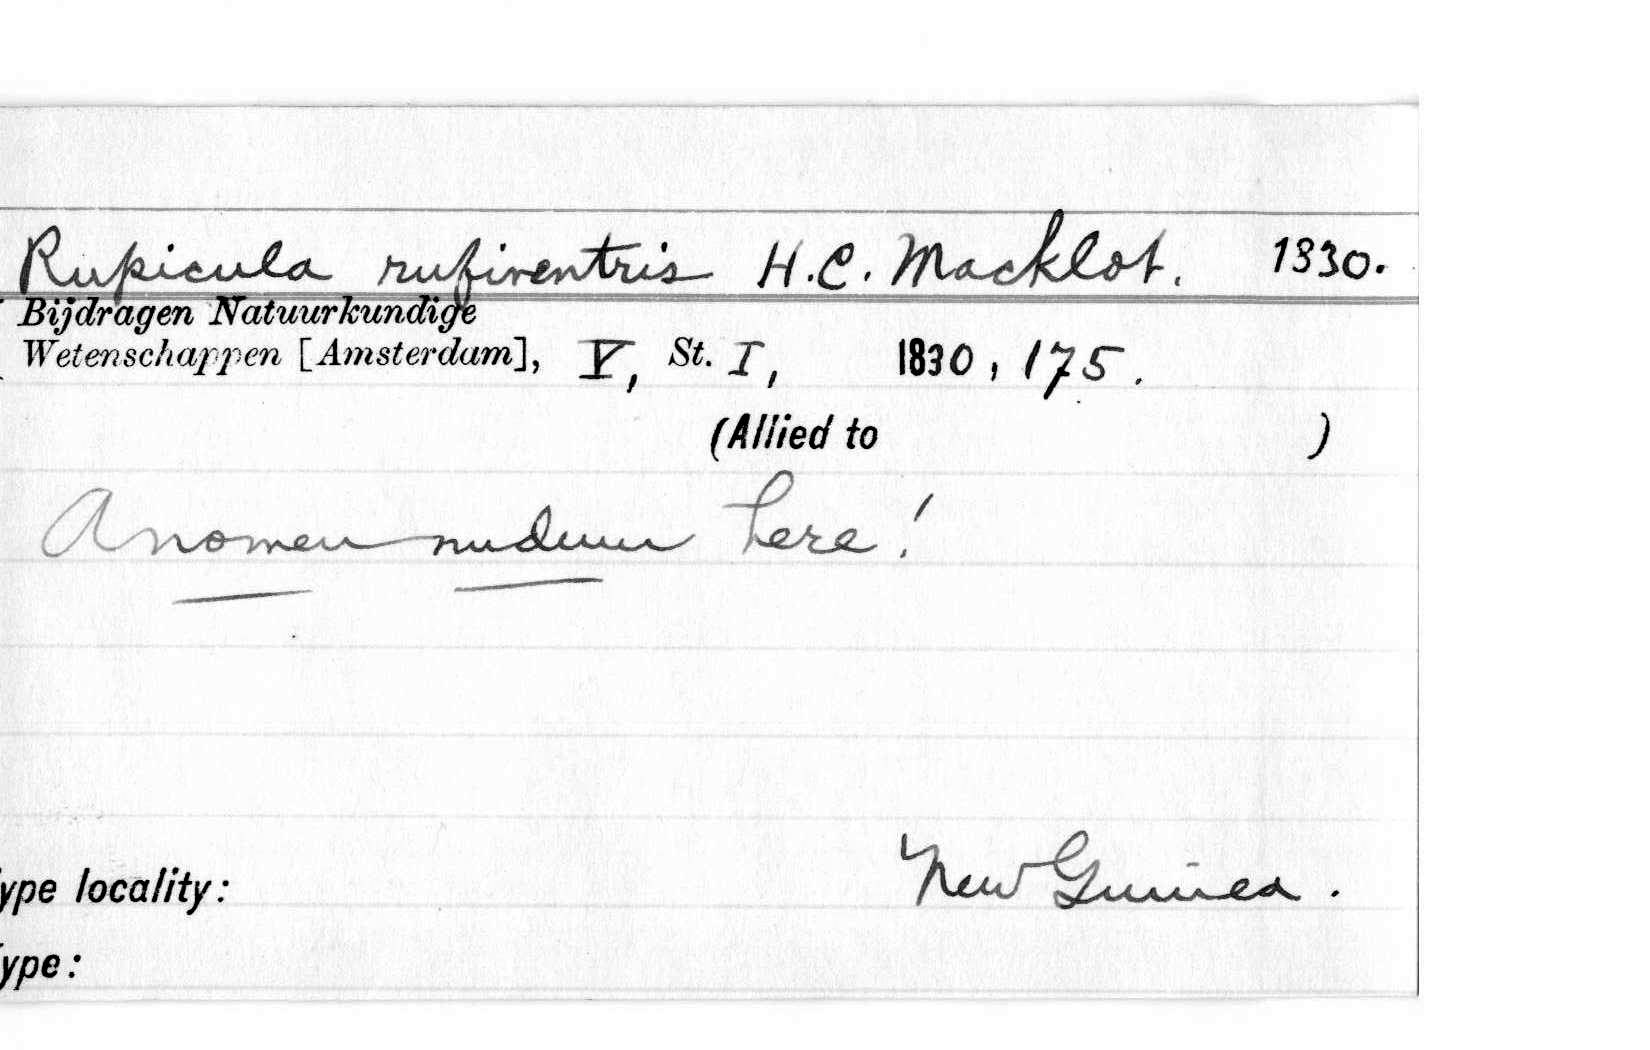 Rupicula rufiventris H.C. Macklot. 1830.
Bijdragen Natuurkundige
Wetenschappen [Amsterdam], V, St. I, 1830, 175.
(Allied to )
A nomen nudum here!
New Guinea.
ype locality:
ype: